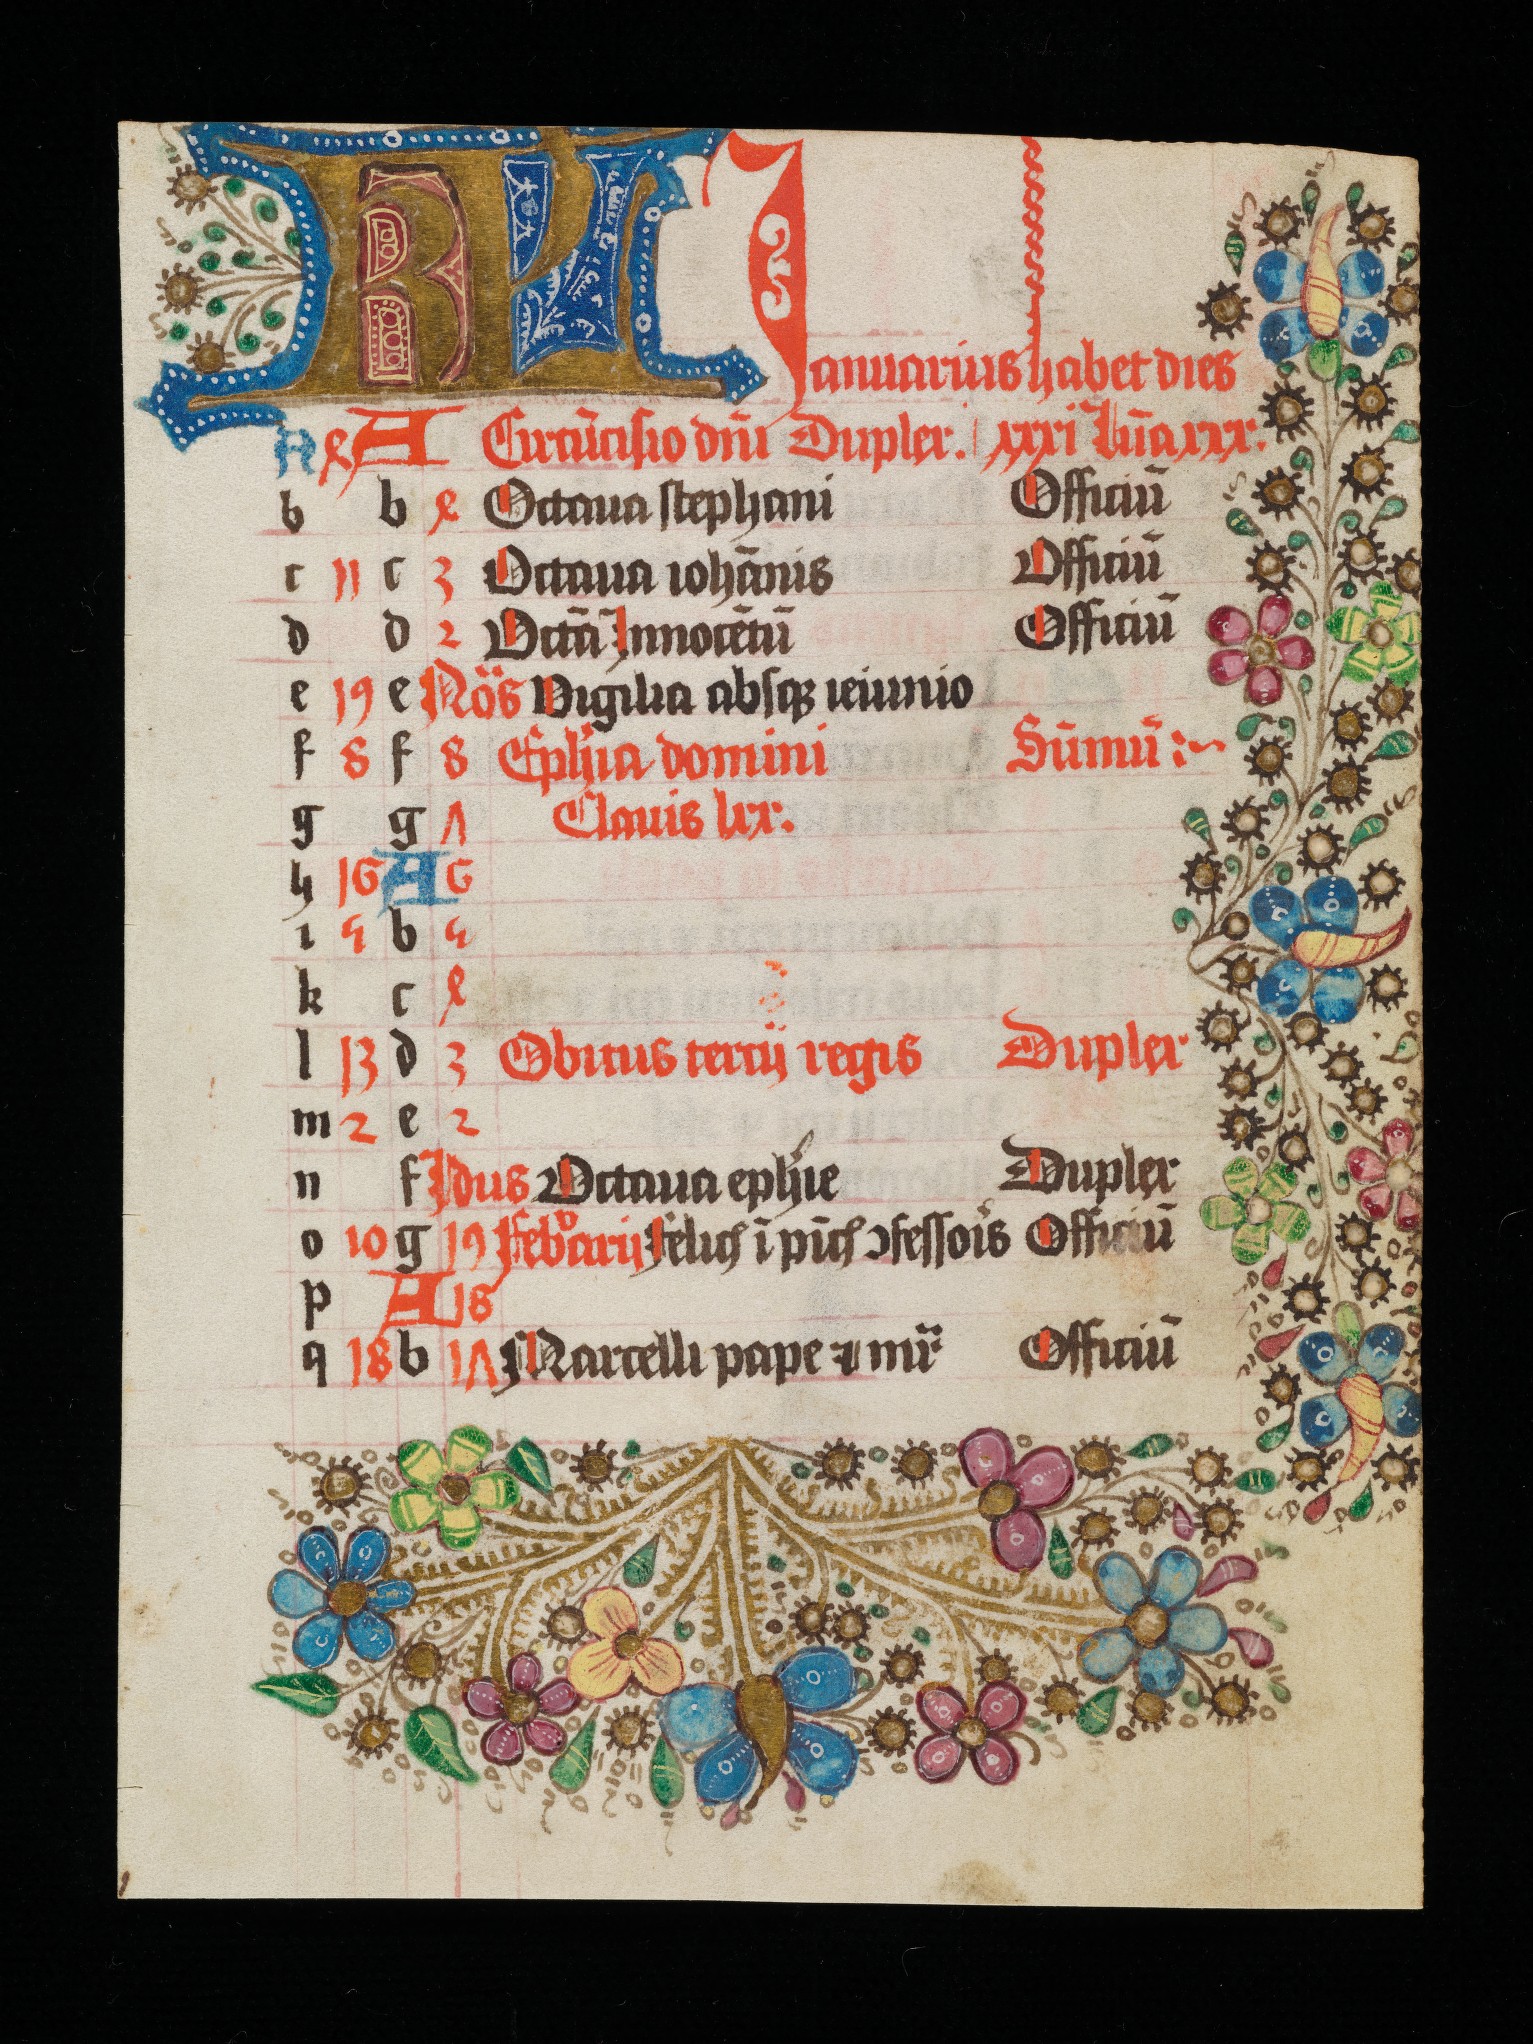 KL Januarius habet dies
A Circūcisio dn̄i Dupler. xxxi Lūa xxx.
b b e Octaua stephani Officiū
c 11 c 3 Octaua iohānis Officiū
d d 2 Octā Innocētū Officiū
e 19 e Nōs Vigilia absqꝫ ieiunio
f 8 f 8 Eph̄ia domini Sūmū
g g Λ Clauis lxx.
h 16 A 6
i 4 b 4
k c e
l 13 d 3 Obitus tercij regis Dupler
m 2 e 2
n f Idus Octaua eph̄ie Dupler
o 10 g 19 Febͦarij Felicꝭ ī pīcꝭ ꝯfessoīs Officiū
p A 18
q 18 b 1Λ Marcelli pape ⁊ mr̄ Officiū